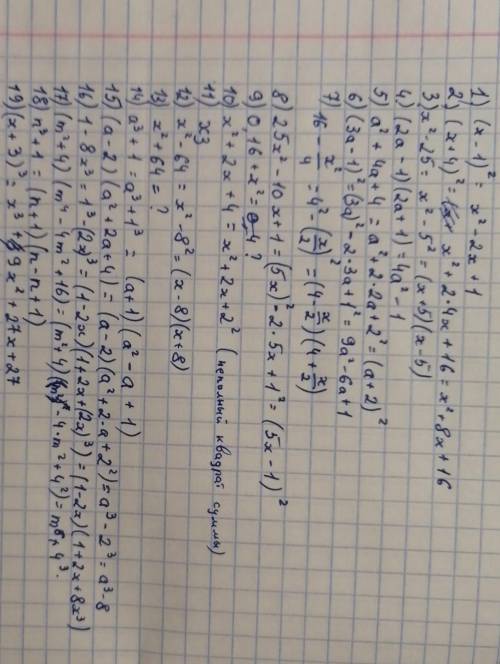 1) (x - 1)² = x² - 2x + 1
2) (x+4)² = x² + 2·4x + 16 = x² + 8x + 16
3) x² - 25 = x² - 5² = (x+5)(x-5)
4) (2a - 1)(2a + 1) = 4a² - 1
5) a² + 4a + 4 = a² + 2·2a + 2² = (a + 2)²
6) (3a - 1)² = (3a)² - 2·3a + 1² = 9a² - 6a + 1
7) 16 - x²/4 = 4² - (x/2)² = (4 - x/2)(4 + x/2)
8) 25x² - 10x + 1 = (5x)² - 2·5x + 1² = (5x - 1)²
9) 0,16 + x² = 0,4 ?
10) x² + 2x + 4 = x² + 2x + 2² (неполный квадрат суммы)
11) хз
12) x² - 64 = x² - 8² = (x - 8)(x + 8)
13) x² + 64 = ?
14) a³ + 1 = a³ + 1³ = (a+1)(a² - a + 1)
15) (a - 2)(a² + 2a + 4) = (a - 2)(a² + 2·a + 2²) = a³ - 2³ = a³ - 8
16) 1 - 8x³ = 1³ - (2x)³ = (1 - 2x)(1 + 2x + (2x)³) = (1 - 2x)(1 + 2x + 8x³)
17) (m² + 4)(m⁴ - 4m² + 16) = (m² + 4)(m⁴ - 4·m² + 4²) = m⁶ + 4³.
18) n³ + 1 = (n + 1)(n - n + 1)
19) (x + 3)³ = x³ + 9x² + 27x + 27